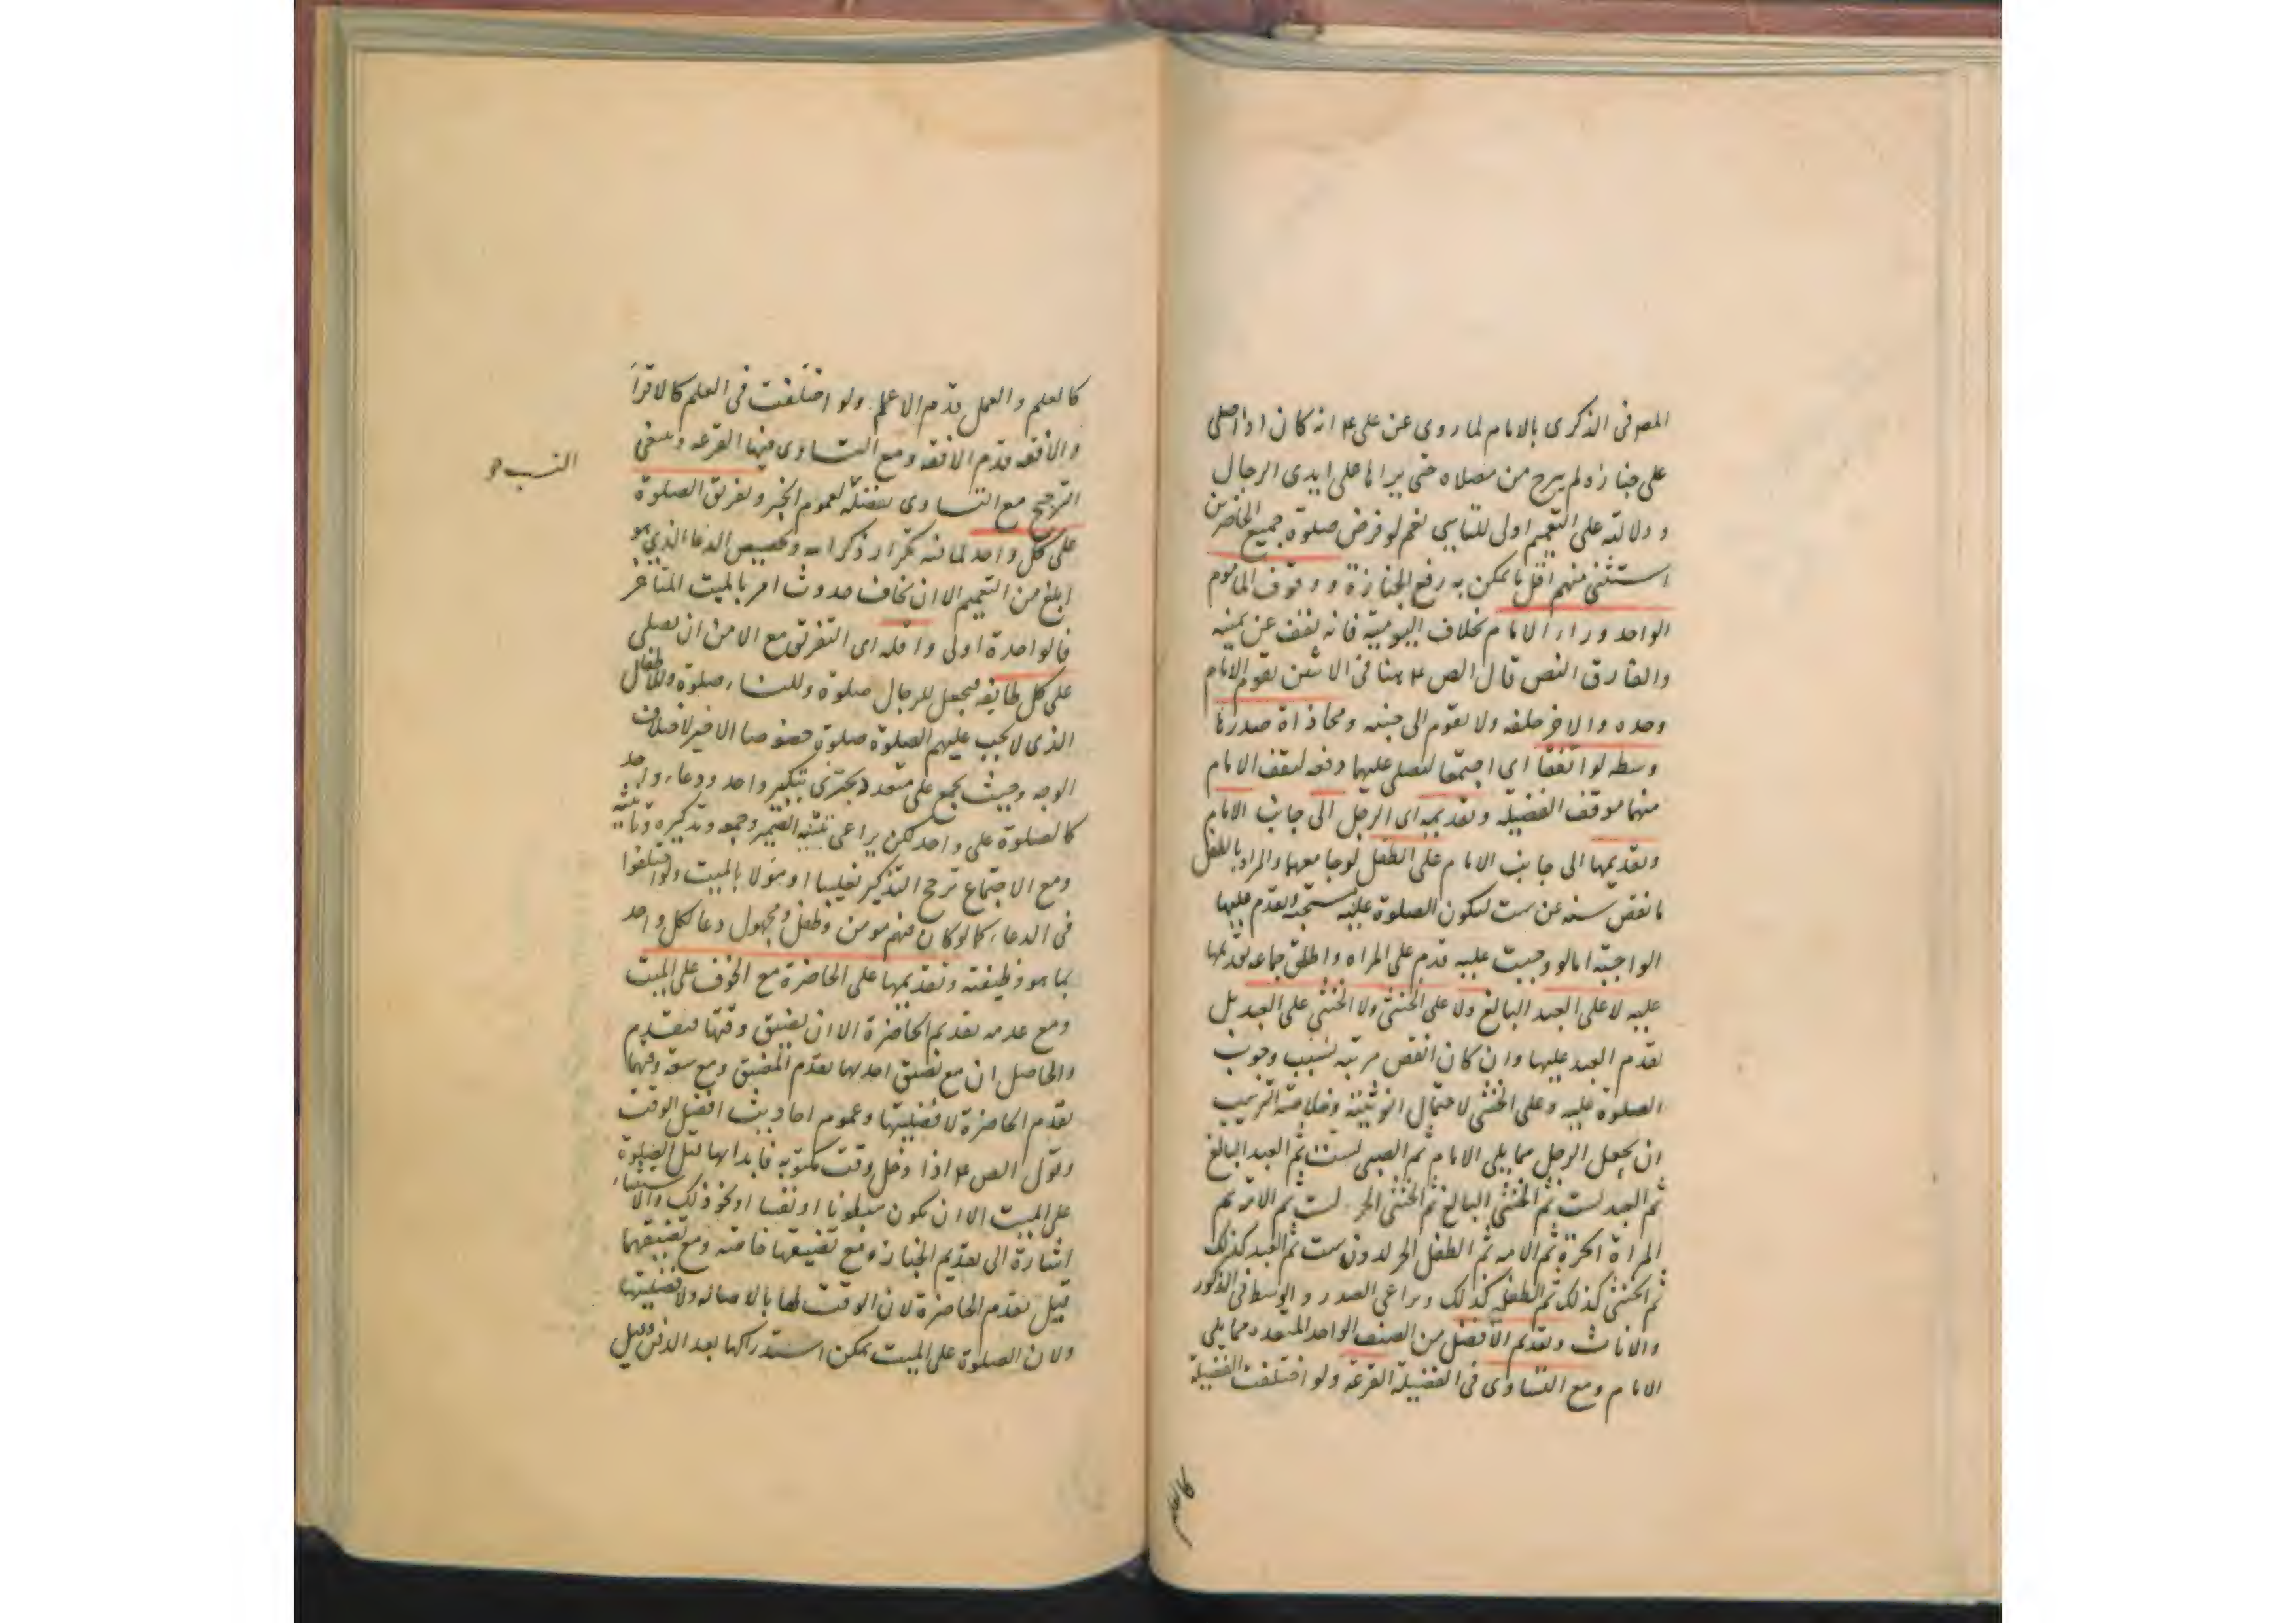 المص في الذكرى بالامام لما روى عن علي ع انه كان اذا صلى
على جنازه لم يبرح من مصلاه حتى يراها على ايدى الرجال
و دلالته على التعميم اولى للتاسي نعم لو فرض صلوة جميع الحاضرين
استثنى منهم اقل ما يمكن به رفع الجنازة و وقوف الماموم
الواحد وراء الامام بخلاف اليومية فانه يقف عن يمينه
والفارق النص قال الص ع هنا في الاثنين يقوم الامام
وحده والاخر خلفه ولا يقوم الى جنبه ومحاذاة صدرها
وسطه لو اتفقا اى اجتمعا ليصلى عليهما دفعه ليقف الامام
منهما موقف الفضيله وتقديمه اى الرجل الى جانب الامام
وتقديمها الى جانب الامام على الطفل لو جامعها والمراد بالطفل
ما نقص سنه عن ست لتكون الصلوة عليه مستحبة وتقدم عليها
الواجبة اما لو وجبت عليه قدم على المراه واطلق جماعه تقديمها
عليه لا على العبد البالغ ولا على الخنثى ولا الخنثى على العبد بل
تقدم العبد عليها وان كان انقص مرتبه بسبب وجوب
الصلوة عليه وعلى الخنثى لاحتمال انوثيته وخلاصة الترتيب
ان يجعل الرجل مما يلى الامام ثم الصبى لست ثم العبد البالغ
ثم العبد لست ثم الخنثى البالغ ثم الخنثى الحر لست ثم الامه ثم
المراة الحرة ثم الامه ثم الطفل الحر لدون ست ثم العبد كذلك
ثم الخنثى كذلك ثم الطفلة كذلك ويراعى الصدر والوسط فى الذكور
والاناث وتقديم الافضل من الصنف الواحد المتعدد مما يلى
الامام ومع التساوى فى الفضيلة القرعة ولو اختلفت الفضيلة
كالعلم
كالعلم والعمل قدم الاعلم ولو اختلفت فى العلم كالاقرأ
والافقه قدم الافقه ومع التساوى فيها القرعه وينبغى
الترجيح مع التساوى بفضله لعموم الخبر وتفريق الصلوة
على كل واحد لما فيه تكرار ذكر الله وتخصيص الدعا الذي هو
ابلغ من التعميم الا ان نخاف حدوث امر بالميت المتاخر
فالواحدة اولى واقله اى التفرق مع الامن ان يصلى
على كل طايفه فيجعل للرجال صلوة وللنساء صلوة وللاطفال
الذى لا يجب عليهم الصلوة صلوة خصوصا الاخير لاختلاف
الوجه وحيث يجمع على متعدد يجتزى بتكبير واحد ودعاء واحد
كالصلوة على واحد لكن يراعى تثنية الضمير وجمعه وتذكيره وتانيثه
ومع الاجتماع ترجح التذكير تغليبا او مؤولا بالميت ولو اختلفوا
فى الدعاء كما لو كان فيهم مومن وطفل ومجهول دعا لكل واحد
بما هو وظيفته وتقديمها على الحاضرة مع الخوف على الميت
ومع عدمه تقديم الحاضرة الا ان يضيق وقتها فيقدم
والحاصل ان مع تضيق احدهما تقدم المضيق ومع سعة وقتهما
تقدم الحاضرة لافضليتها وعموم احاديث افضل الوقت
وقول الص ع اذا دخل وقت مكتوبه فابدا بها قبل الصلوة
على الميت الا ان يكون مبطونا او نفسا او نحو ذلك والاستثناء
اشارة الى تقديم الجنازه مع تضيقها خاصه ومع تضيقهما
قيل تقدم الحاضرة لان الوقت لها بالاصاله ولافضليتها
ولان الصلوة على الميت يمكن استدراكها بعد الدفن وقيل